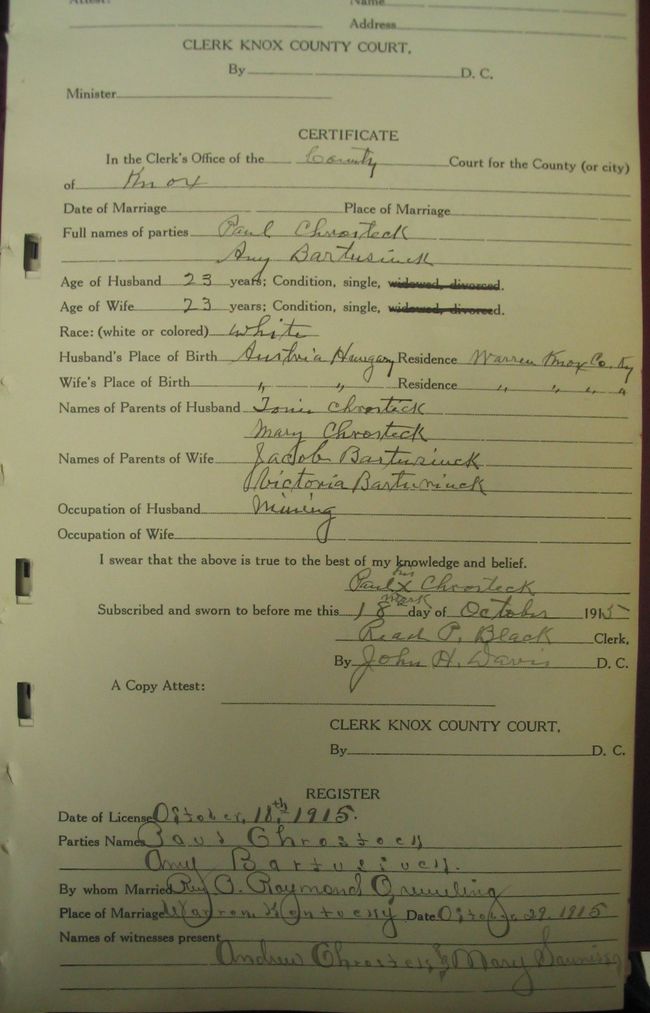 Attest: Name
Address
CLERK KNOX COUNTY COURT,
By D. C.
Minister
CERTIFICATE
In the Clerk's Office of the County Court for the County (or city)
of Knox
Date of Marriage Place of Marriage
Full names of parties Paul Chrosteck
Any Bartusiuck
Age of Husband 23 years; Condition, single, widowed, divorced.
Age of Wife 23 years; Condition, single, widowed, divorced.
Race: (white or colored) White
Husband's Place of Birth Austria Hungary Residence Warren Knox Co. Ky
Wife's Place of Birth " " Residence " " " "
Names of Parents of Husband Chrosteck
Mary Chrosteck
Names of Parents of Wife Jacob Bartusiuck
Victoria Bartusiuck
Occupation of Husband Mining
Occupation of Wife
I swear that the above is true to the best of my knowledge and belief.
Paul his x mark Chrosteck
Subscribed and sworn to before me this 18 day of October 1915
Read P. Black Clerk,
By John H. Davis D. C.
A Copy Attest:
CLERK KNOX COUNTY COURT,
By D. C.
REGISTER
Date of License October, 18th, 1915.
Parties Names Paul Chrosteck
Any Bartusiuck.
By whom Married Rev O. Raymond
Place of Marriage Warren Kentucky Date 29, 1915
Names of witnesses present
Andrew Chrosteck & Mary